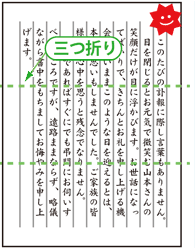 このたびの訃報に際し言葉もありません。
目を閉じるとお元気で微笑む山本さんの
笑顔だけが目に浮かびます。お世話になっ
てばかりで、きちんとお礼を申し上げる機
会 いままこのような日を迎えるとは、
本 思いもしませんでした。ご家族の皆
様 心中を思うと残念でなりません。
であればすぐにでも弔問にお伺いす
べ ころですが、遠路ままならず、略儀
ながら書中をもちましてお悔やみを申し上
げます。
三つ折り